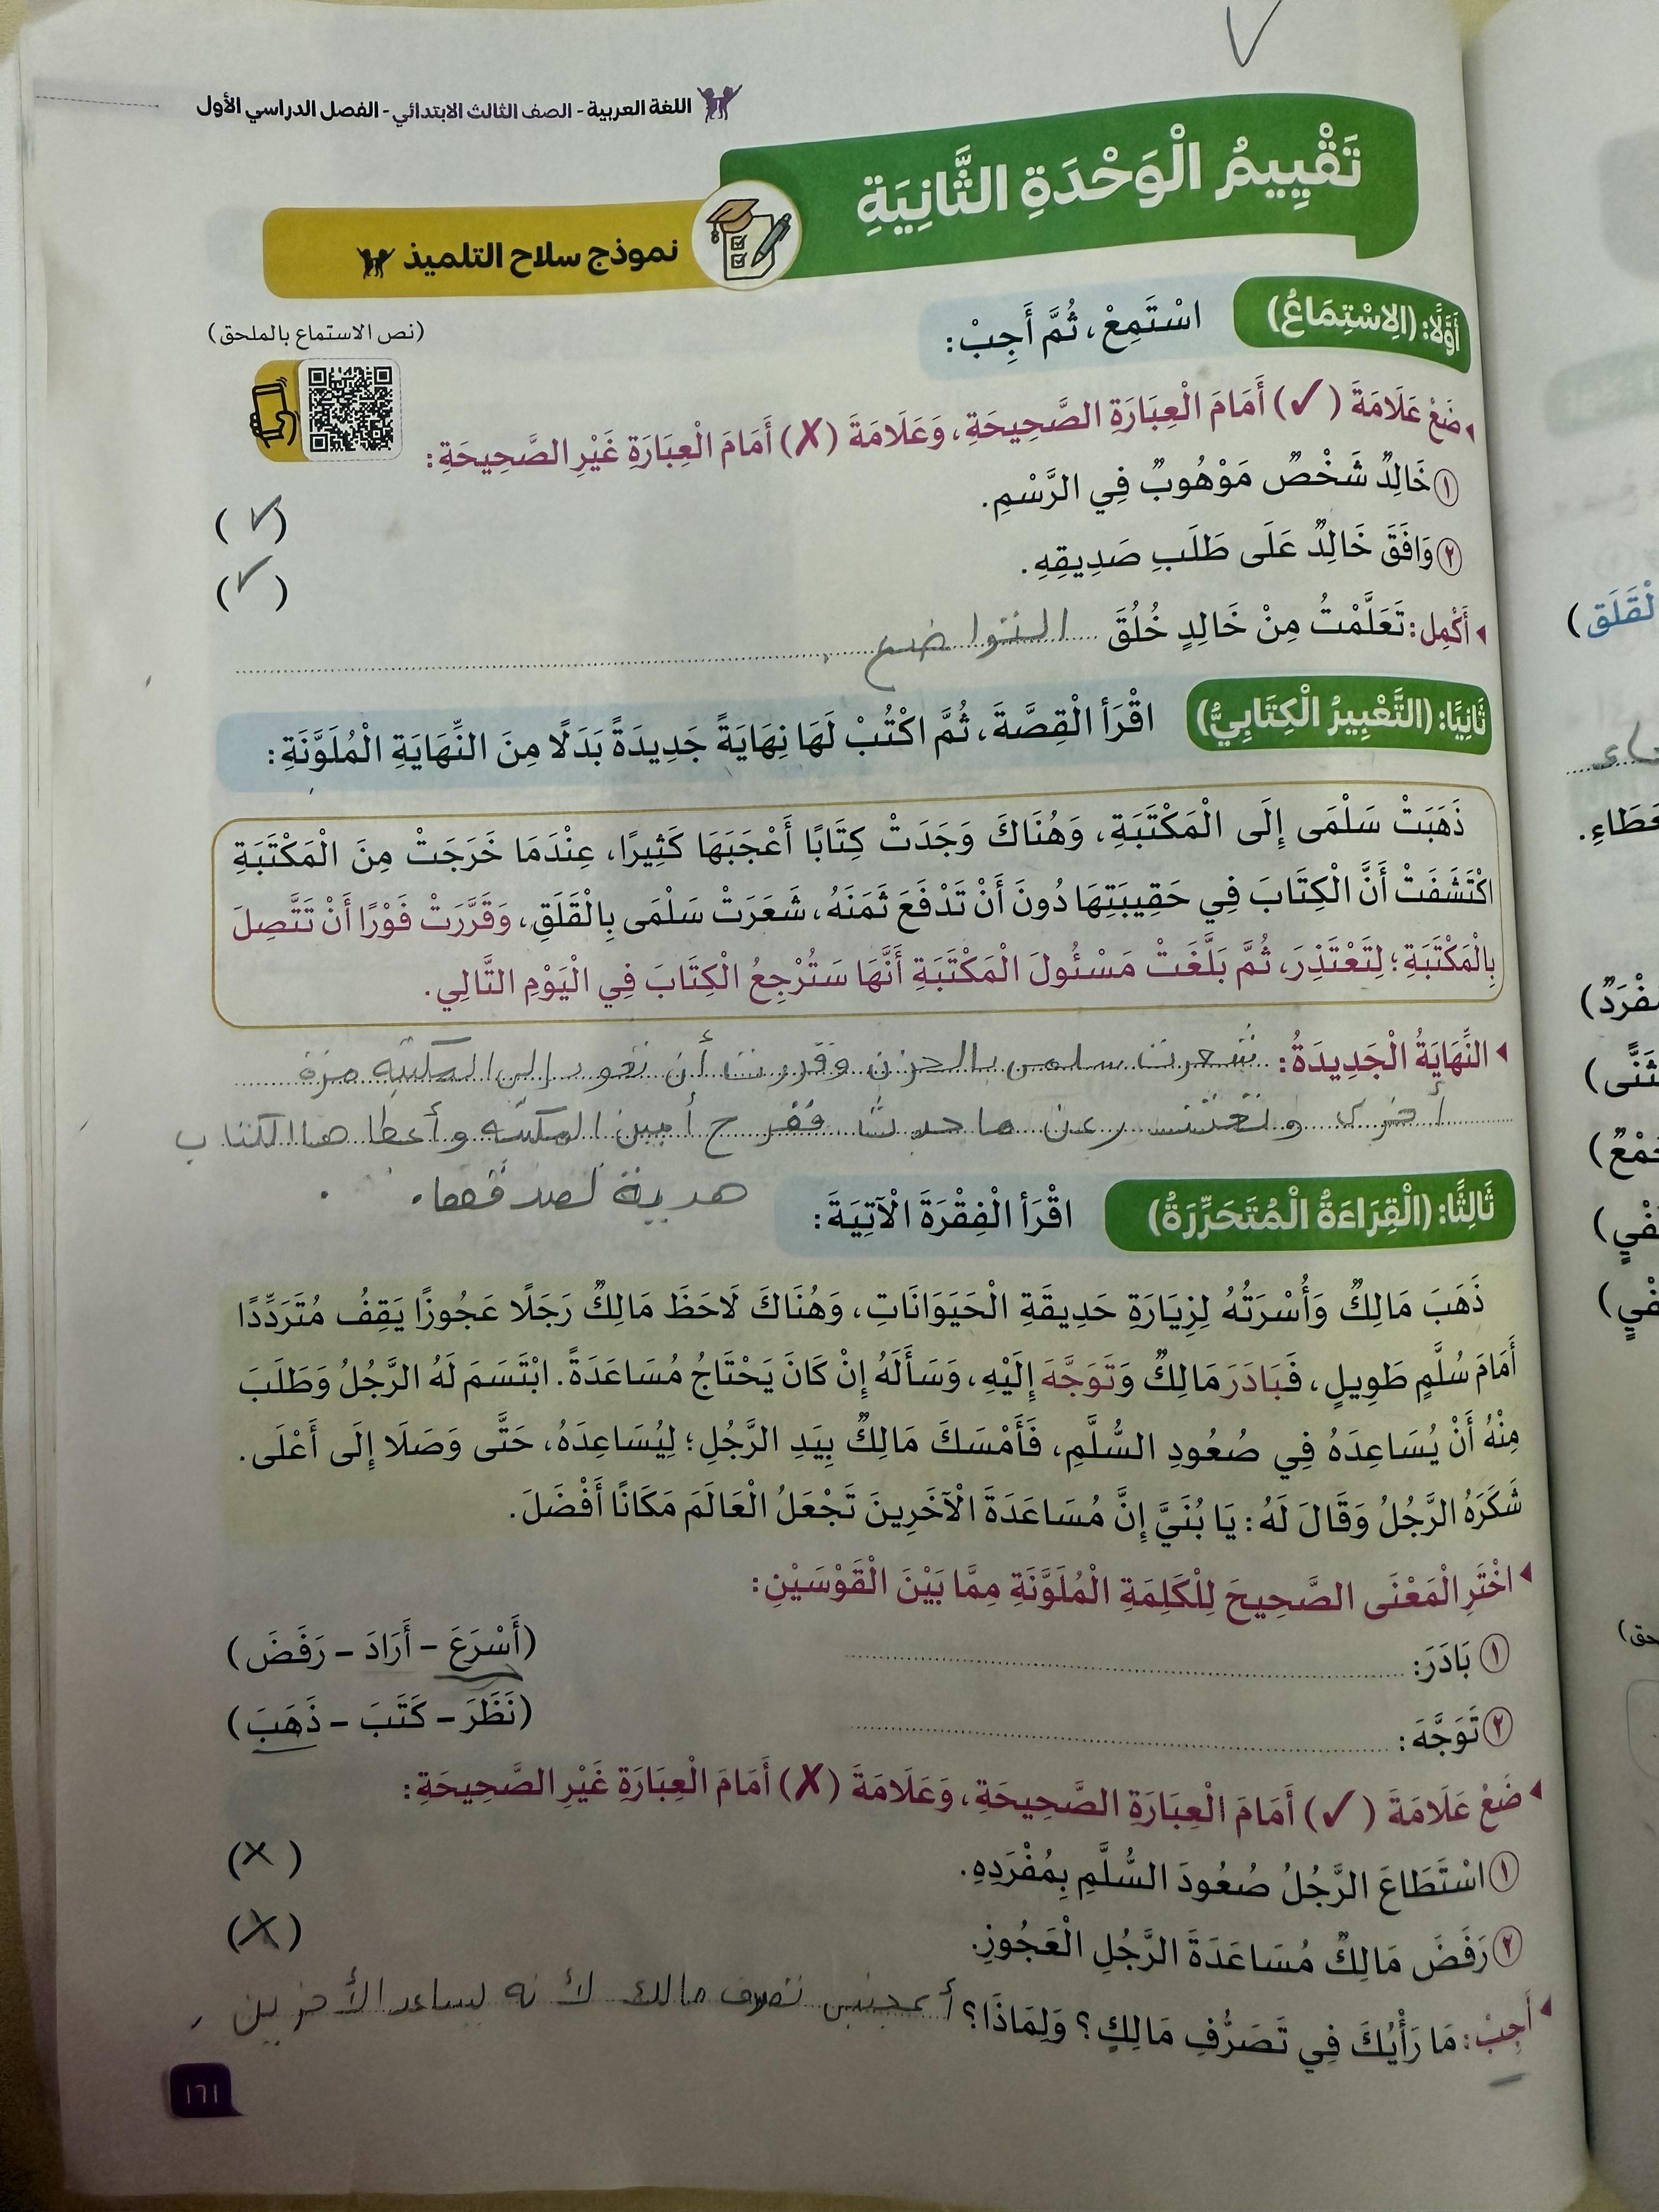 اللغة العربية - الصف الثالث الابتدائي - الفصل الدراسي الأول
تَقْيِيمُ الْوَحْدَةِ الثَّانِيَةِ
نموذج سلاح التلميذ
أَوَّلًا: (الِاسْتِمَاعُ) اسْتَمِعْ، ثُمَّ أَجِبْ:
(نص الاستماع بالملحق)
ضَعْ عَلَامَةَ (✓) أَمَامَ الْعِبَارَةِ الصَّحِيحَةِ، وَعَلَامَةَ (✗) أَمَامَ الْعِبَارَةِ غَيْرِ الصَّحِيحَةِ:
١ خَالِدٌ شَخْصٌ مَوْهُوبٌ فِي الرَّسْمِ. (✓)
٢ وَافَقَ خَالِدٌ عَلَى طَلَبِ صَدِيقِهِ. (✓)
أَكْمِل: تَعَلَّمْتُ مِنْ خَالِدٍ خُلُقَ التواضع
ثَانِيًا: (التَّعْبِيرُ الْكِتَابِيُّ) اقْرَأ الْقِصَّةَ، ثُمَّ اكْتُبْ لَهَا نِهَايَةً جَدِيدَةً بَدَلًا مِنَ النِّهَايَةِ الْمُلَوَّنَةِ:
ذَهَبَتْ سَلْمَى إِلَى الْمَكْتَبَةِ، وَهُنَاكَ وَجَدَتْ كِتَابًا أَعْجَبَهَا كَثِيرًا، عِنْدَمَا خَرَجَتْ مِنَ الْمَكْتَبَةِ
اكْتَشَفَتْ أَنَّ الْكِتَابَ فِي حَقِيبَتِهَا دُونَ أَنْ تَدْفَعَ ثَمَنَهُ، شَعَرَتْ سَلْمَى بِالْقَلَقِ، وَقَرَّرَتْ فَوْرًا أَنْ تَتَّصِلَ
بِالْمَكْتَبَةِ؛ لِتَعْتَذِرَ، ثُمَّ بَلَّغَتْ مَسْئُولَ الْمَكْتَبَةِ أَنَّهَا سَتُرْجِعُ الْكِتَابَ فِي الْيَوْمِ التَّالِي.
النِّهَايَةُ الْجَدِيدَةُ: شعرت سلمى بالحزن وقررت أن تعود إلى المكتبه مرة
أخرى وتعتذر عن ما حدث ففرح أمين المكتبه وأعطاها الكتاب
هدية لصدقها.
ثَالِثًا: (الْقِرَاءَةُ الْمُتَحَرِّرَةُ) اقْرَأ الْفِقْرَةَ الْآتِيَةَ:
ذَهَبَ مَالِكٌ وَأُسْرَتُهُ لِزِيَارَةِ حَدِيقَةِ الْحَيَوَانَاتِ، وَهُنَاكَ لَاحَظَ مَالِكٌ رَجَلًا عَجُوزًا يَقِفُ مُتَرَدِّدًا
أَمَامَ سُلَّمٍ طَوِيلٍ، فَبَادَرَ مَالِكٌ وَتَوَجَّهَ إِلَيْهِ، وَسَأَلَهُ إِنْ كَانَ يَحْتَاجُ مُسَاعَدَةً. ابْتَسَمَ لَهُ الرَّجُلُ وَطَلَبَ
مِنْهُ أَنْ يُسَاعِدَهُ فِي صُعُودِ السُّلَّمِ، فَأَمْسَكَ مَالِكٌ بِيَدِ الرَّجُلِ؛ لِيُسَاعِدَهُ، حَتَّى وَصَلَا إِلَى أَعْلَى.
شَكَرَهُ الرَّجُلُ وَقَالَ لَهُ: يَا بُنَيَّ إِنَّ مُسَاعَدَةَ الْآخَرِينَ تَجْعَلُ الْعَالَمَ مَكَانًا أَفْضَلَ.
اخْتَرِ الْمَعْنَى الصَّحِيحَ لِلْكَلِمَةِ الْمُلَوَّنَةِ مِمَّا بَيْنَ الْقَوْسَيْنِ:
١ بَادَرَ: (أَسْرَعَ - أَرَادَ - رَفَضَ)
٢ تَوَجَّهَ: (نَظَرَ - كَتَبَ - ذَهَبَ)
ضَعْ عَلَامَةَ (✓) أَمَامَ الْعِبَارَةِ الصَّحِيحَةِ، وَعَلَامَةَ (✗) أَمَامَ الْعِبَارَةِ غَيْرِ الصَّحِيحَةِ:
١ اسْتَطَاعَ الرَّجُلُ صُعُودَ السُّلَّمِ بِمُفْرَدِهِ. (✗)
٢ رَفَضَ مَالِكٌ مُسَاعَدَةَ الرَّجُلِ الْعَجُوزِ. (✗)
أَجِبْ: مَا رَأْيُكَ فِي تَصَرُّفِ مَالِكٍ؟ وَلِمَاذَا؟ أعجبني تصرف مالك لأنه يساعد الأخرين
١٦١